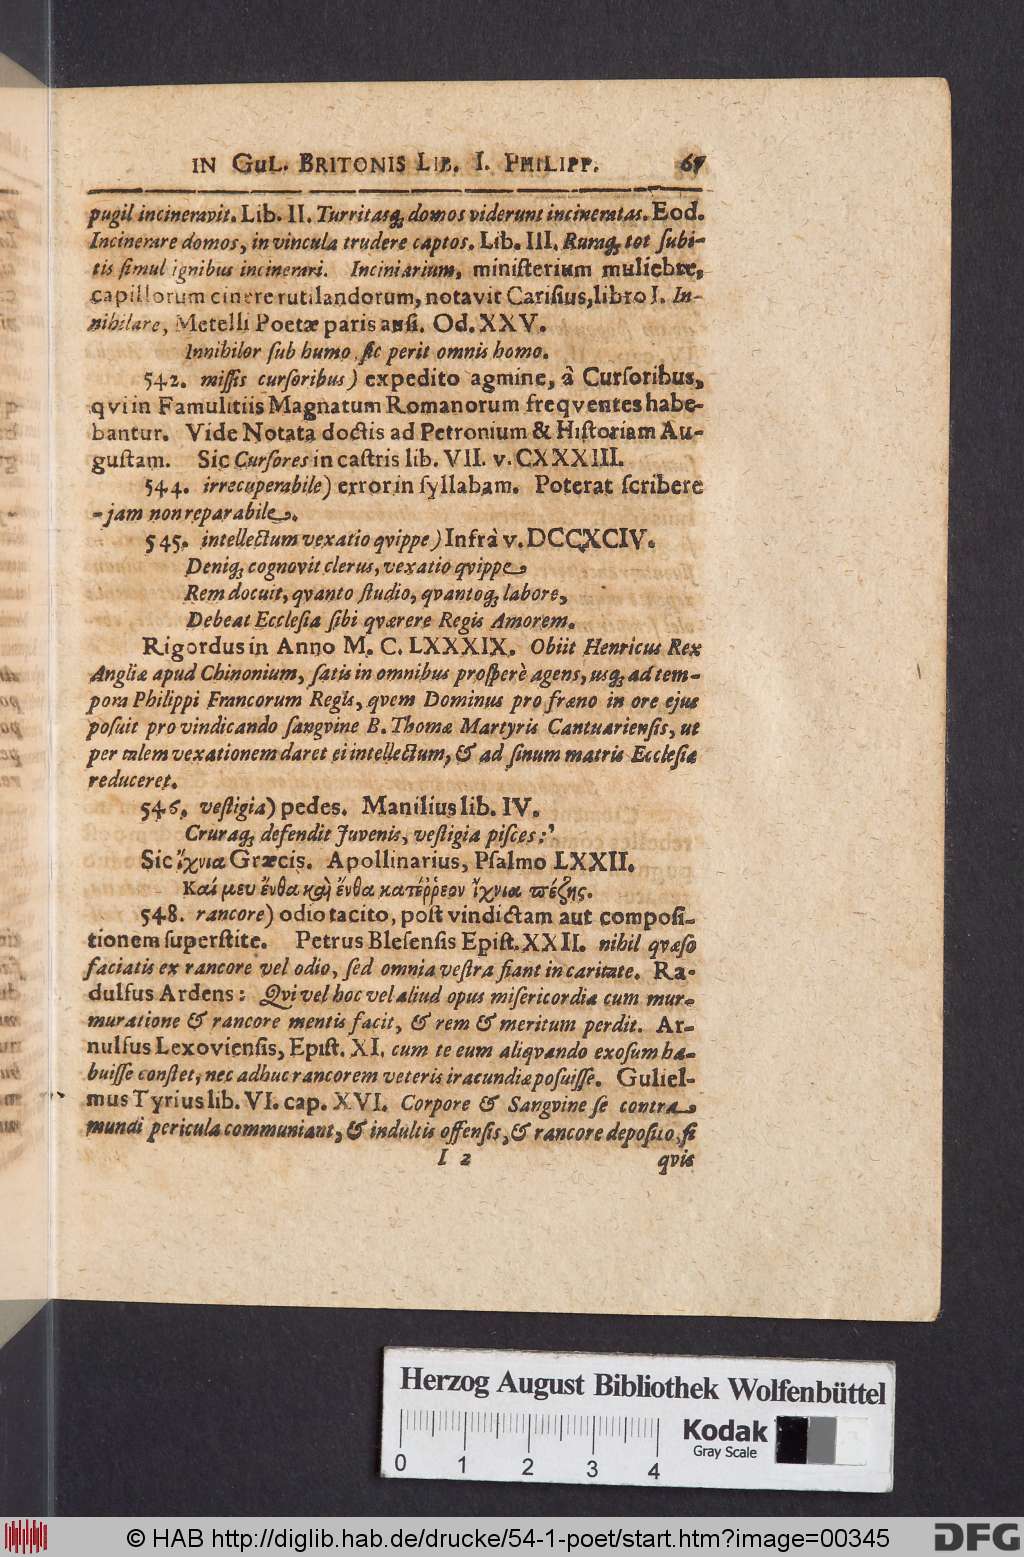 IN GuL. BRITONIS LIB. I. PHILIPP. 67
pugil incineravit. Lib. II. Turritasq́; domos viderunt incineratas. Eod.
Incinerare domos, in vincula trudere captos. Lib. III. Ruraq́; tot ſubi-
tis ſimul ignibus incinerari. Iniciniarium, miniſterium muliebre,
capillorum cinere rutilandorum, notavit Cariſius, libro I. In-
nihilare, Metelli Poetæ paris auſi. Od. XXV.
Innihilor ſub humo, ſic perit omnis homo.
542. miſſis curſoribus) expedito agmine, à Curſoribus,
qvi in Famulitiis Magnatum Romanorum freqventes habe-
bantur. Vide Notata doctis ad Petronium & Hiſtoriam Au-
guſtam. Sic Curſores in caſtris lib. VII. v. CXXXIII.
544. irrecuperabile) error in ſyllabam. Poterat ſcribere
-jam non reparabile.
545. intellectum vexatio qvippe) Infrà v. DCCXCIV.
Deniq́; cognovit clerus, vexatio qvippe
Rem docuit, qvanto ſtudio, qvantoq́; labore,
Debeat Eccleſia ſibi qværere Regis Amorem.
Rigordus in Anno M. C. LXXXIX. Obiit Henricus Rex
Angliæ apud Chinonium, ſatis in omnibus proſperè agens, usq́; ad tem-
pora Philippi Francorum Regis, qvem Dominus pro fræno in ore ejus
poſuit pro vindicando ſangvine B. Thomæ Martyris Cantuarienſis, ut
per talem vexationem daret ei intellectum, & ad ſinum matris Eccleſiæ
reduceret.
546. veſtigia) pedes. Manilius lib. IV.
Cruraq́; defendit Juvenis, veſtigia piſces:
Sic ἴχνια Græcis. Apollinarius, Pſalmo LXXII.
Καί μευ ἔνθα καὶ ἔνθα κατέῤῥεον ἴχνια πέζης.
548. rancore) odio tacito, poſt vindictam aut compoſi-
tionem ſuperſtite. Petrus Bleſenſis Epiſt. XXII. nihil qvæſo
faciatis ex rancore vel odio, ſed omnia veſtra fiant in caritate. Ra-
dulfus Ardens: Qvi vel hoc vel aliud opus miſericordiæ cum mur-
muratione & rancore mentis facit, & rem & meritum perdit. Ar-
nulfus Lexovienſis, Epiſt. XI. cum te eum aliqvando exoſum ha-
buiſſe conſtet, nec adhuc rancorem veteris iracundiæ poſuiſſe. Guliel-
mus Tyrius lib. VI. cap. XVI. Corpore & Sangvine ſe contra
mundi pericula communiant, & indultis offenſis, & rancore depoſito, ſi
I 2 qvis
Herzog August Bibliothek Wolfenbüttel
Kodak
Gray Scale
0 1 2 3 4
© HAB http://diglib.hab.de/drucke/54-1-poet/start.htm?image=00345
DFG